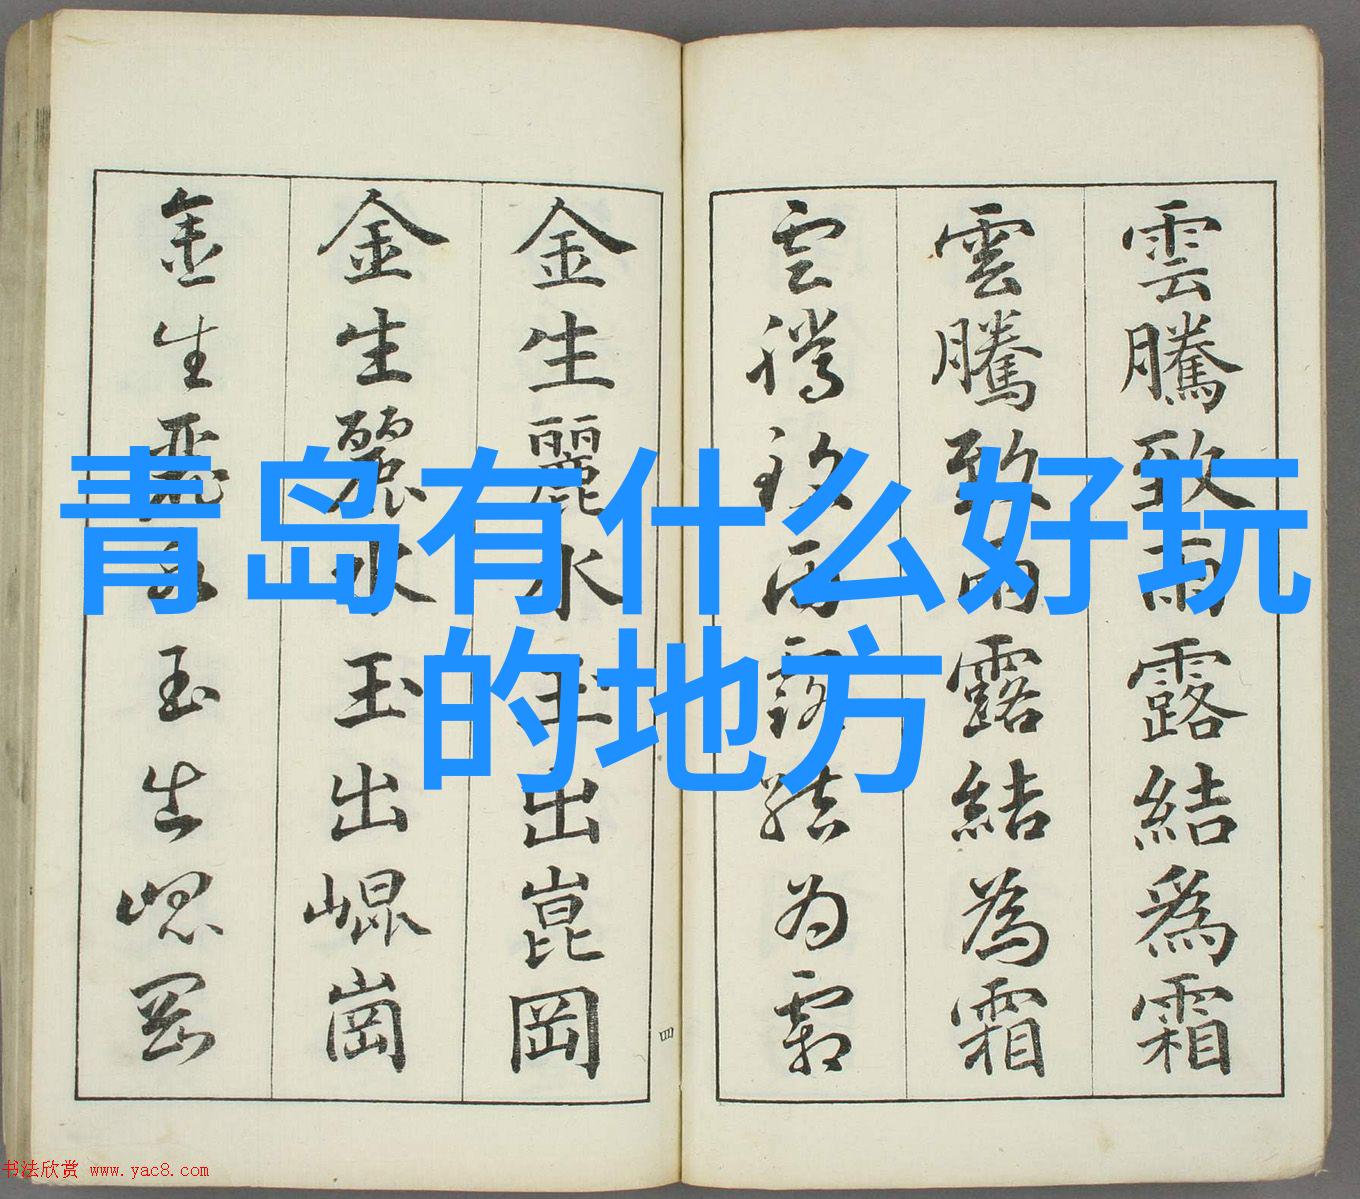 青岛有什么好玩
的地方
雲騰致雨露結爲霜
雲騰致雨露結為霜
雲騰致雨露結为霜
金生麗水玉出崑岡
金生麗水玉出崐崗
金生麗水玉出崐岡
四
书法欣赏 www.yac8.com